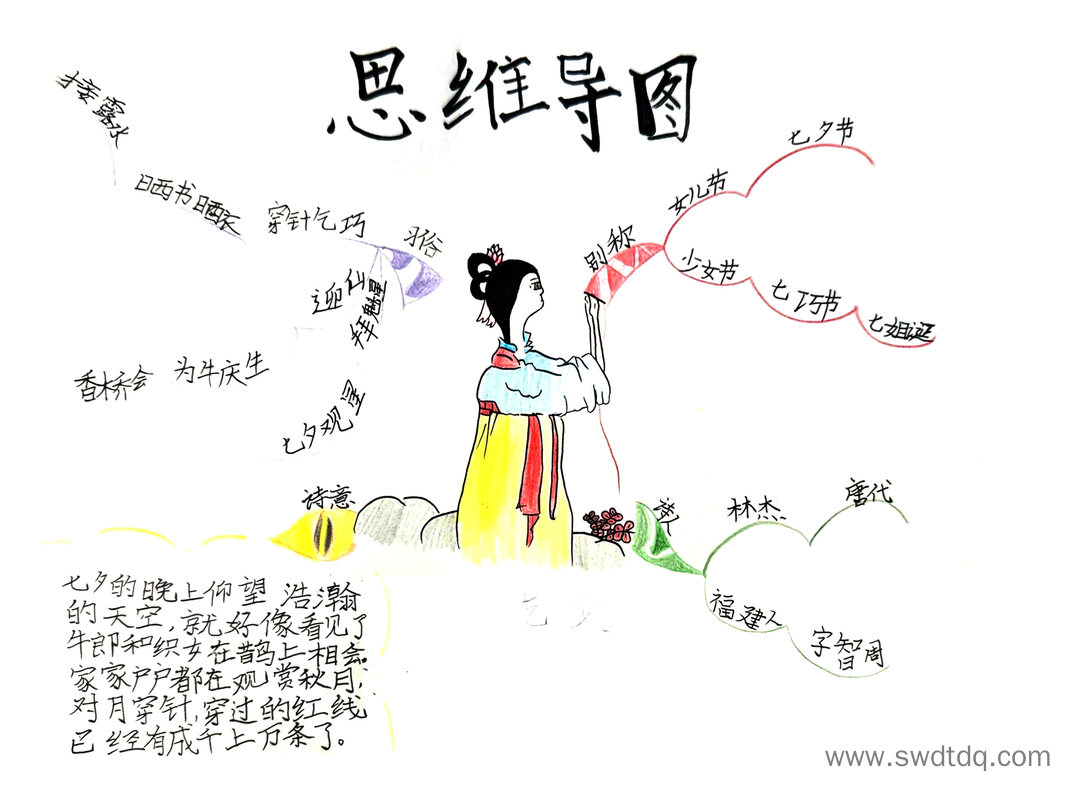 思维导图
接露水
晒书晒衣
穿针乞巧
习俗
迎仙
拜魁星
香桥会
为牛庆生
七夕观星
别称
七夕节
女儿节
少女节
七巧节
七姐诞
诗意
七夕的晚上仰望 浩瀚
的天空,就好像看见了
牛郎和织女在鹊上相会。
家家户户都在观赏秋月,
对月穿针,穿过的红线
已经有成千上万条了。
林杰
唐代
福建人
字智周
www.swdtdq.com